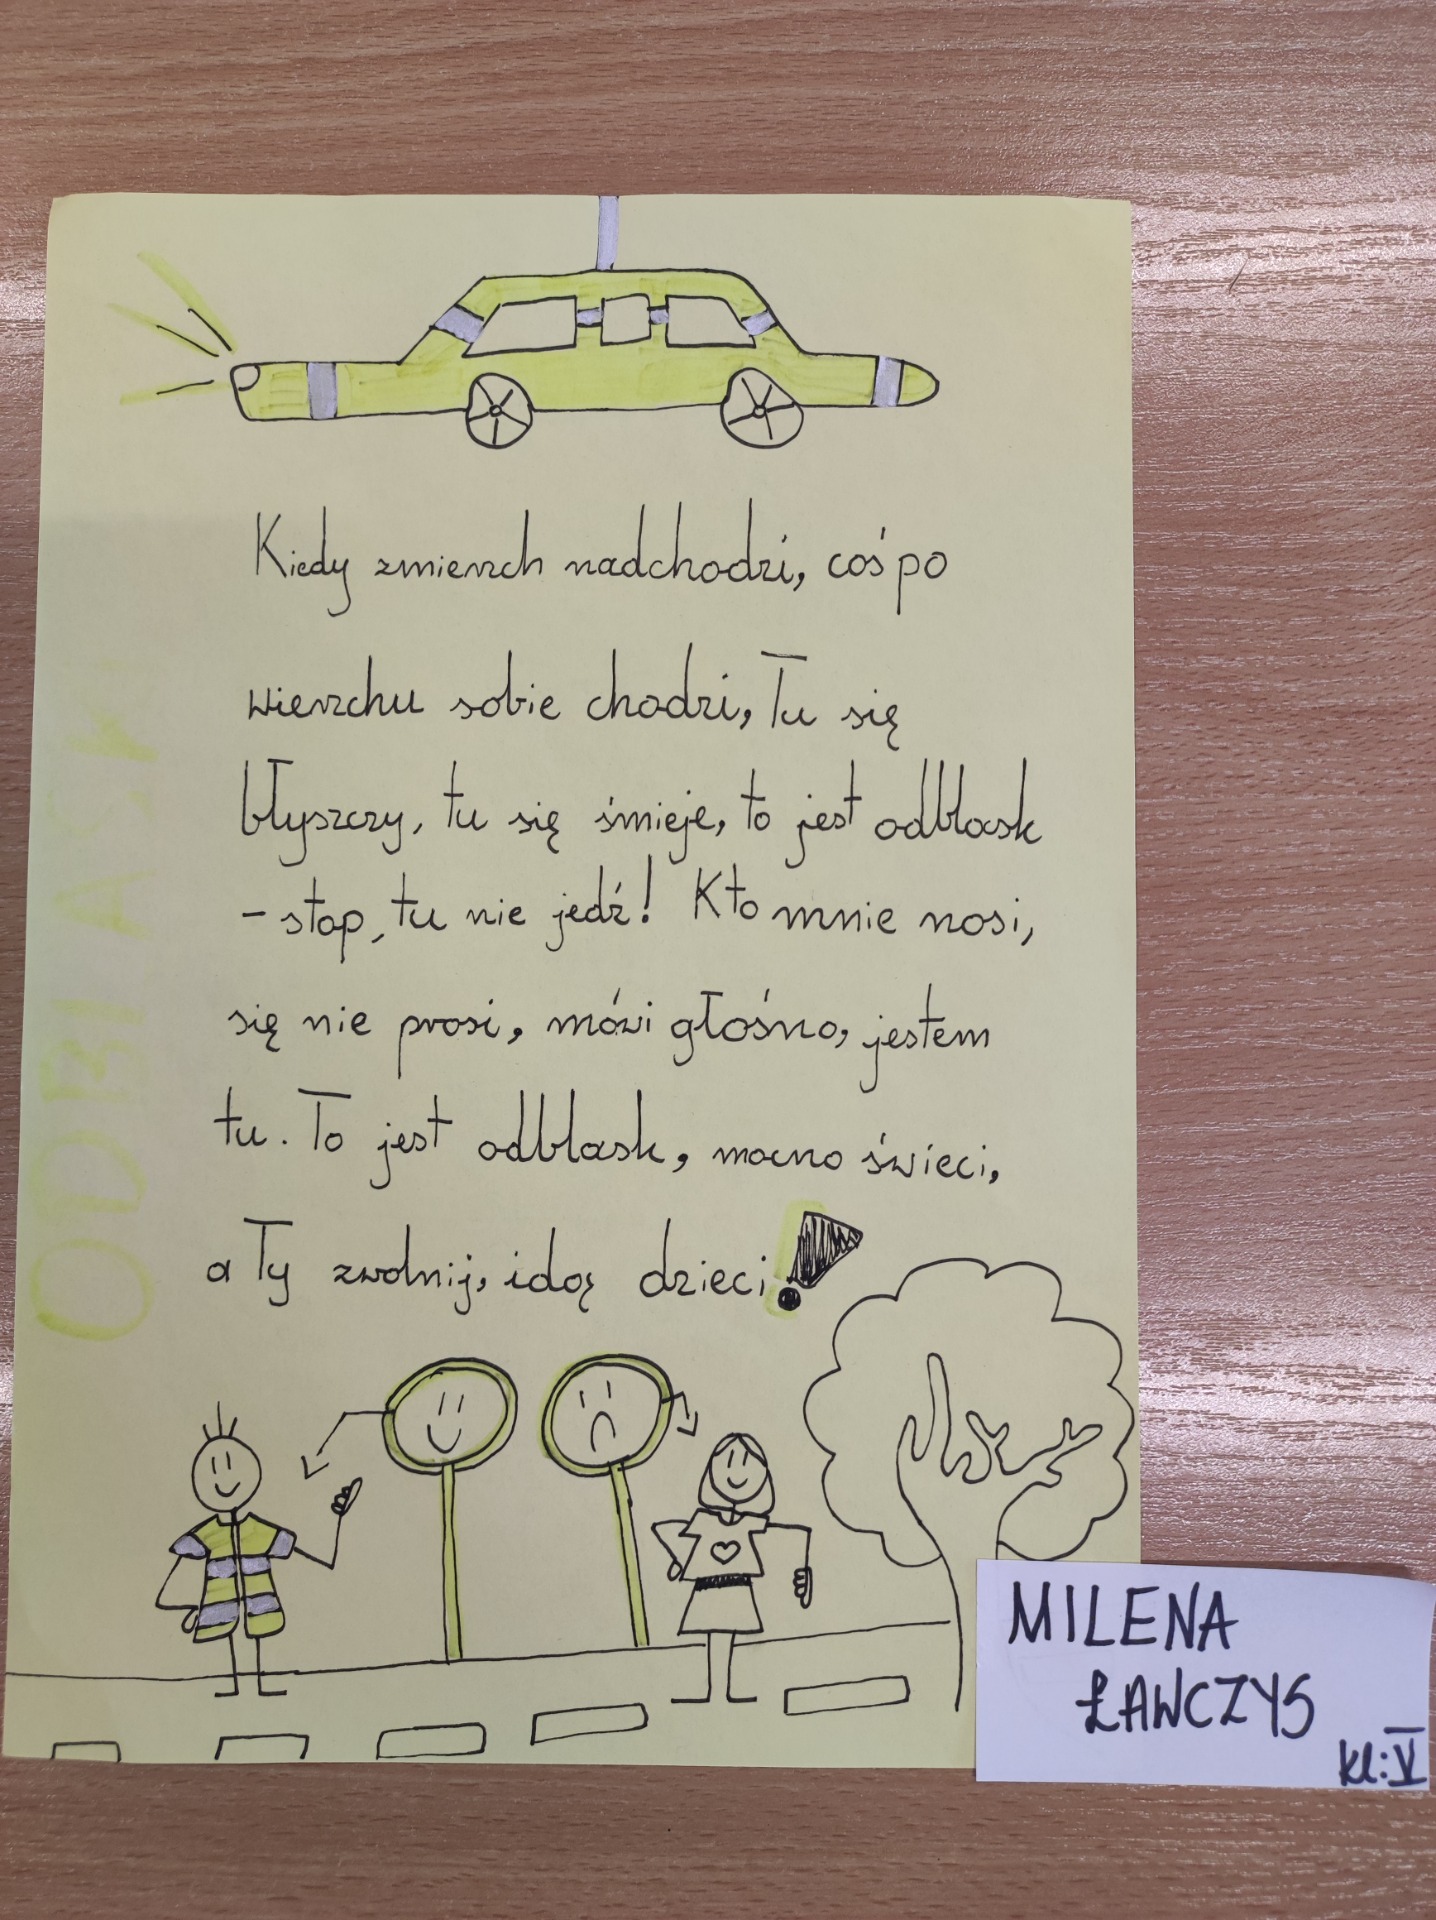 Kiedy zmierzch nadchodzi, coś po
wierzchu sobie chodzi, Tu się
błyszczy, tu się śmieje, to jest odblask
- stop, tu nie jedź! Kto mnie nosi,
się nie prosi, mówi głośno, jestem
tu. To jest odblask, mocno świeci,
a Ty zwolnij, idą dzieci!
ODBLASK
MILENA
ŁAWCZYS
kl: V